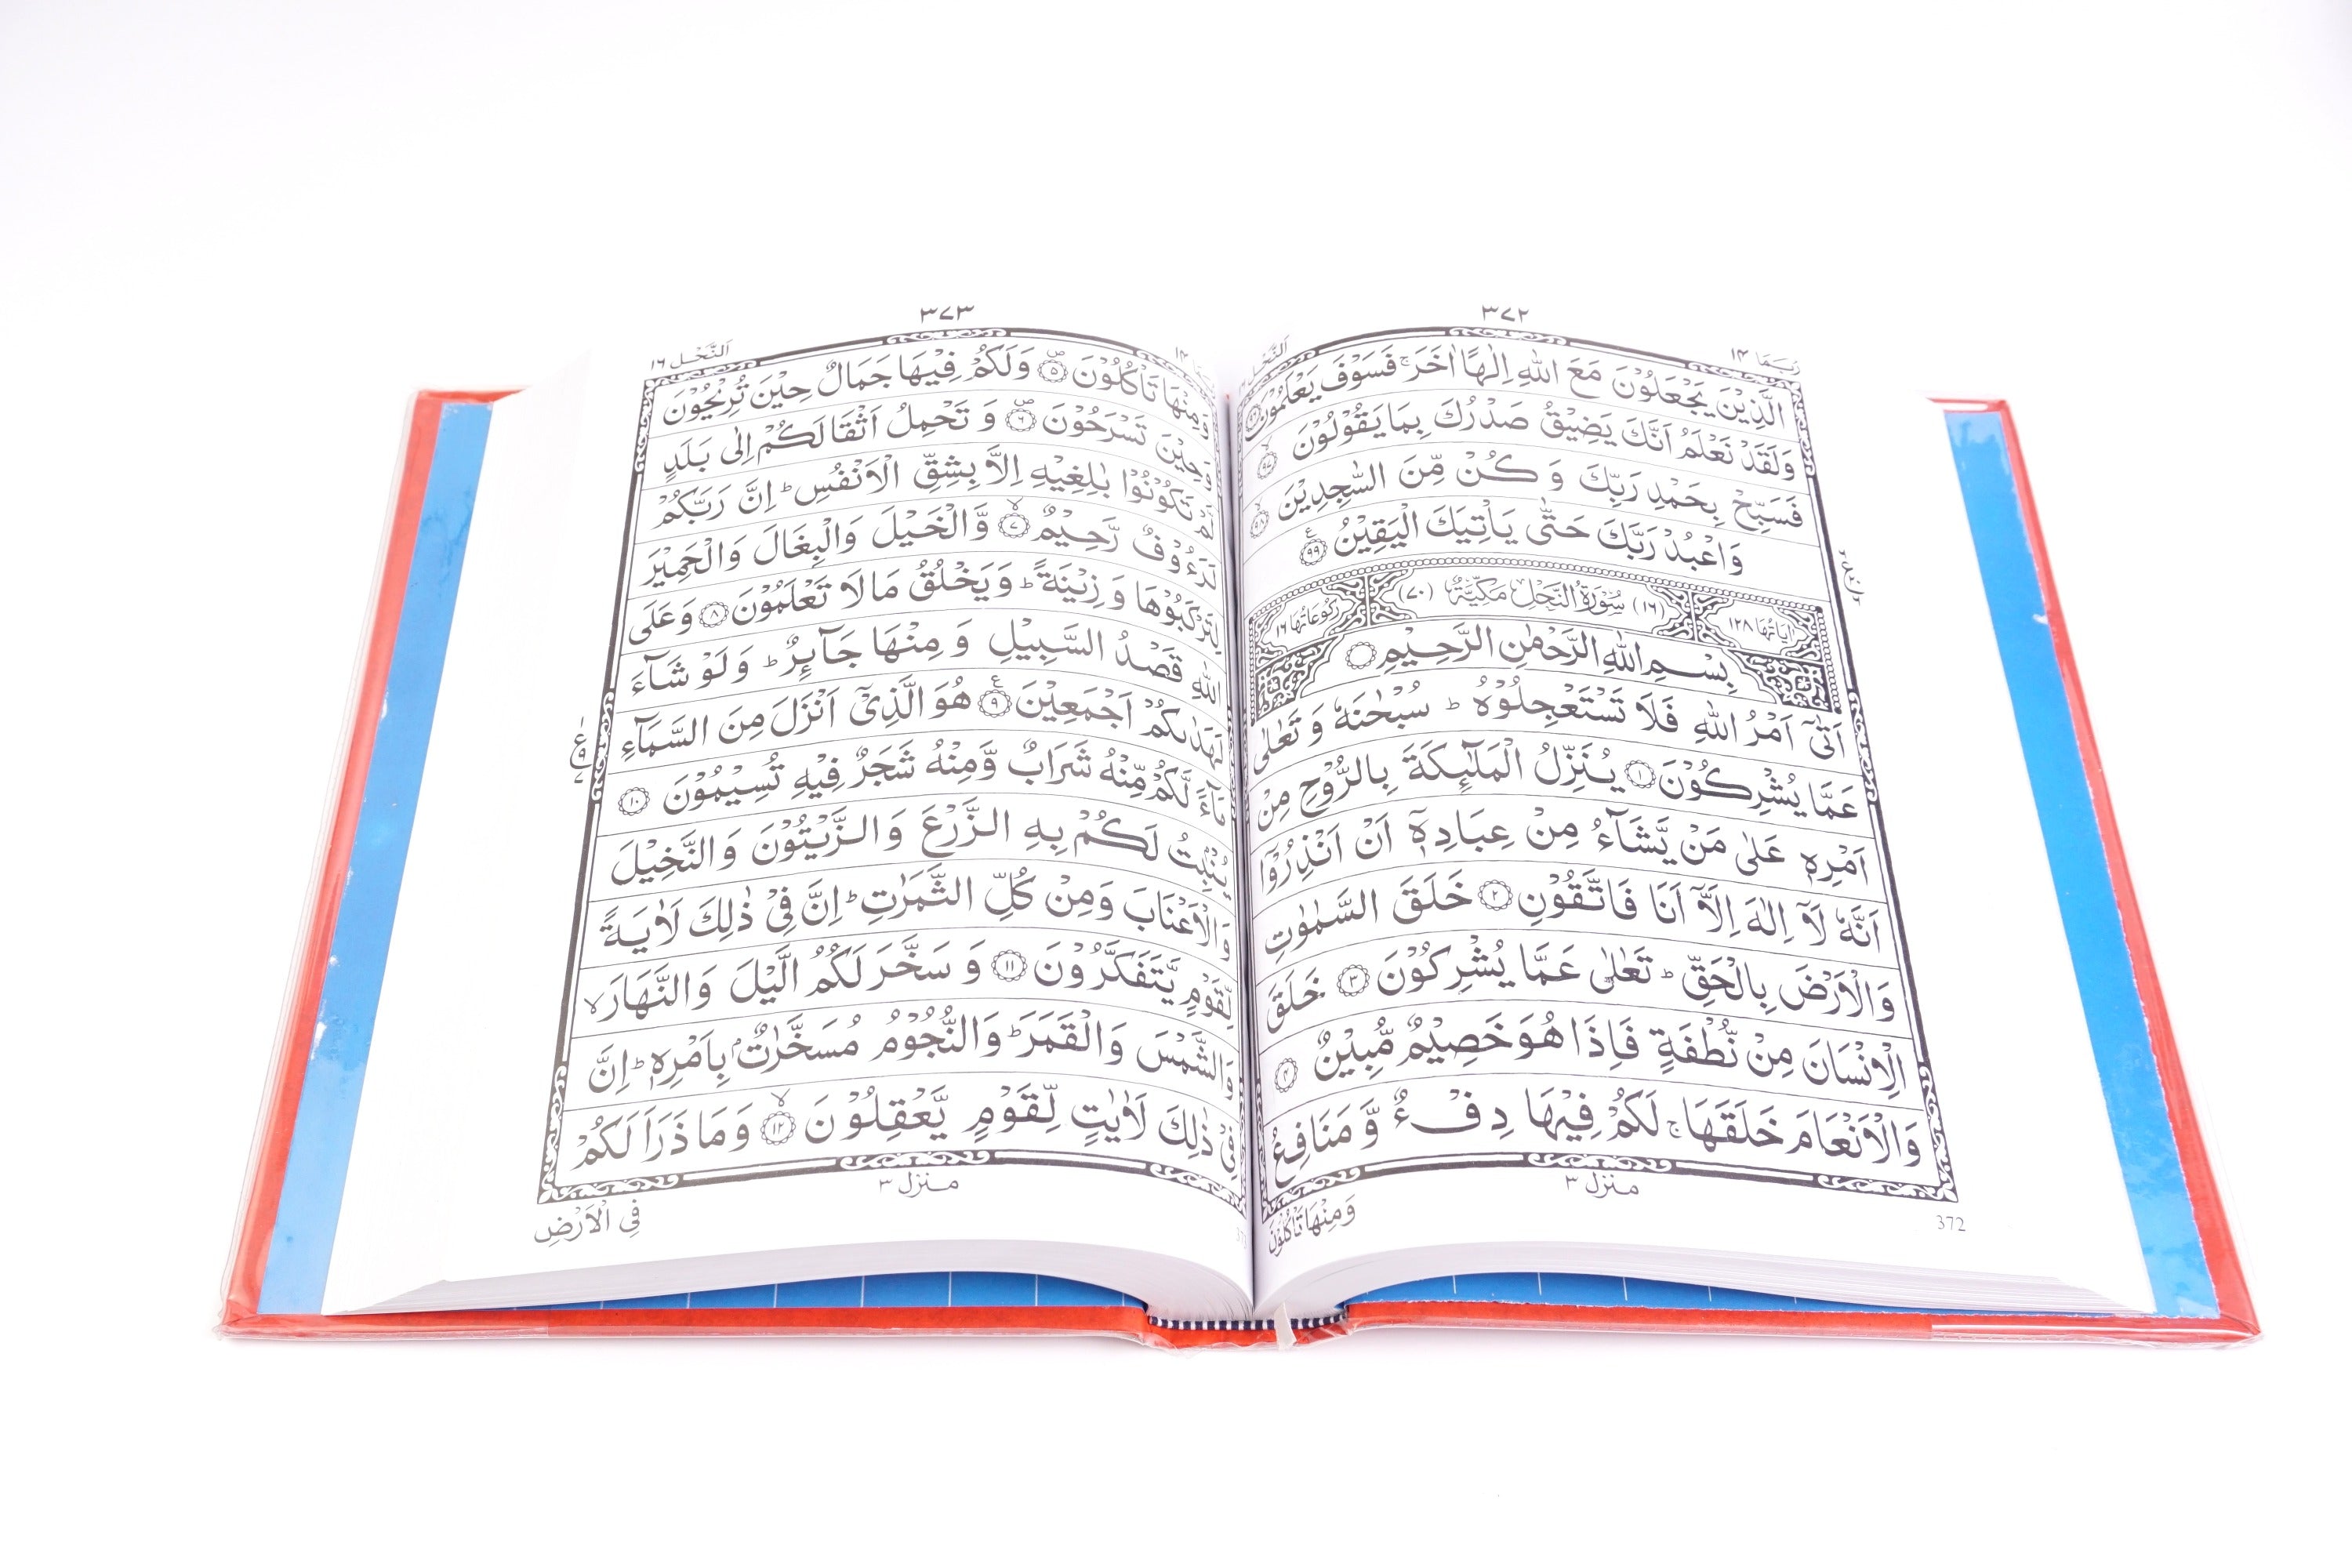 ٣٧٢
رُبَمَا ١٤
الَّذِيْنَ يَجْعَلُوْنَ مَعَ اللّٰهِ اِلٰهًا اٰخَرَ ۚ فَسَوْفَ يَعْلَمُوْنَ ۝٩٦
وَلَقَدْ نَعْلَمُ اَنَّكَ يَضِيْقُ صَدْرُكَ بِمَا يَقُوْلُوْنَ ۝٩٧ۙ
فَسَبِّحْ بِحَمْدِ رَبِّكَ وَ كُنْ مِّنَ السّٰجِدِيْنَ ۝٩٨ۙ
وَاعْبُدْ رَبَّكَ حَتّٰى يَاْتِيَكَ الْيَقِيْنُ ۝٩٩
اٰيَاتُهَا ١٢٨ (١٦) سُوْرَةُ النَّحْلِ مَكِّيَّةٌ (٧٠) رُكُوْعَاتُهَا ١٦
بِسْمِ اللّٰهِ الرَّحْمٰنِ الرَّحِيْمِ ۝
اَتٰۤى اَمْرُ اللّٰهِ فَلَا تَسْتَعْجِلُوْهُ ؕ سُبْحٰنَهٗ وَ تَعٰلٰى
عَمَّا يُشْرِكُوْنَ ۝١ يُنَزِّلُ الْمَلٰٓئِكَةَ بِالرُّوْحِ مِنْ
اَمْرِهٖ عَلٰى مَنْ يَّشَآءُ مِنْ عِبَادِهٖۤ اَنْ اَنْذِرُوْۤا
اَنَّهٗ لَاۤ اِلٰهَ اِلَّاۤ اَنَا فَاتَّقُوْنِ ۝٢ خَلَقَ السَّمٰوٰتِ
وَالْاَرْضَ بِالْحَقِّ ؕ تَعٰلٰى عَمَّا يُشْرِكُوْنَ ۝٣ خَلَقَ
الْاِنْسَانَ مِنْ نُّطْفَةٍ فَاِذَا هُوَ خَصِيْمٌ مُّبِيْنٌ ۝٤
وَالْاَنْعَامَ خَلَقَهَا ۚ لَكُمْ فِيْهَا دِفْءٌ وَّ مَنَافِعُ
منزل ٣
وَمِنْهَا تَاْكُلُوْنَ
372
٣٧٣
اَلنَّحْل ١٦
وَمِنْهَا تَاْكُلُوْنَ ۝٥ وَلَكُمْ فِيْهَا جَمَالٌ حِيْنَ تُرِيْحُوْنَ
وَحِيْنَ تَسْرَحُوْنَ ۝٦ وَ تَحْمِلُ اَثْقَالَكُمْ اِلٰى بَلَدٍ
لَّمْ تَكُوْنُوْا بٰلِغِيْهِ اِلَّا بِشِقِّ الْاَنْفُسِ ؕ اِنَّ رَبَّكُمْ
لَرَءُوْفٌ رَّحِيْمٌ ۝٧ۙ وَّالْخَيْلَ وَالْبِغَالَ وَالْحَمِيْرَ
لِتَرْكَبُوْهَا وَ زِيْنَةً ؕ وَيَخْلُقُ مَا لَا تَعْلَمُوْنَ ۝٨ وَعَلَى
اللّٰهِ قَصْدُ السَّبِيْلِ وَ مِنْهَا جَآئِرٌ ؕ وَلَوْ شَآءَ
لَهَدٰىكُمْ اَجْمَعِيْنَ ۝٩ هُوَ الَّذِيْۤ اَنْزَلَ مِنَ السَّمَآءِ
مَآءً لَّكُمْ مِّنْهُ شَرَابٌ وَّمِنْهُ شَجَرٌ فِيْهِ تُسِيْمُوْنَ ۝١٠
يُنْۢبِتُ لَكُمْ بِهِ الزَّرْعَ وَالزَّيْتُوْنَ وَالنَّخِيْلَ
وَالْاَعْنَابَ وَمِنْ كُلِّ الثَّمَرٰتِ ؕ اِنَّ فِيْ ذٰلِكَ لَاٰيَةً
لِّقَوْمٍ يَّتَفَكَّرُوْنَ ۝١١ وَ سَخَّرَ لَكُمُ الَّيْلَ وَالنَّهَارَ ۙ
وَالشَّمْسَ وَالْقَمَرَ ؕ وَالنُّجُوْمُ مُسَخَّرٰتٌۢ بِاَمْرِهٖ ؕ اِنَّ
فِيْ ذٰلِكَ لَاٰيٰتٍ لِّقَوْمٍ يَّعْقِلُوْنَ ۝١٢ۙ وَمَا ذَرَاَ لَكُمْ
منزل ٣
فِي الْاَرْضِ